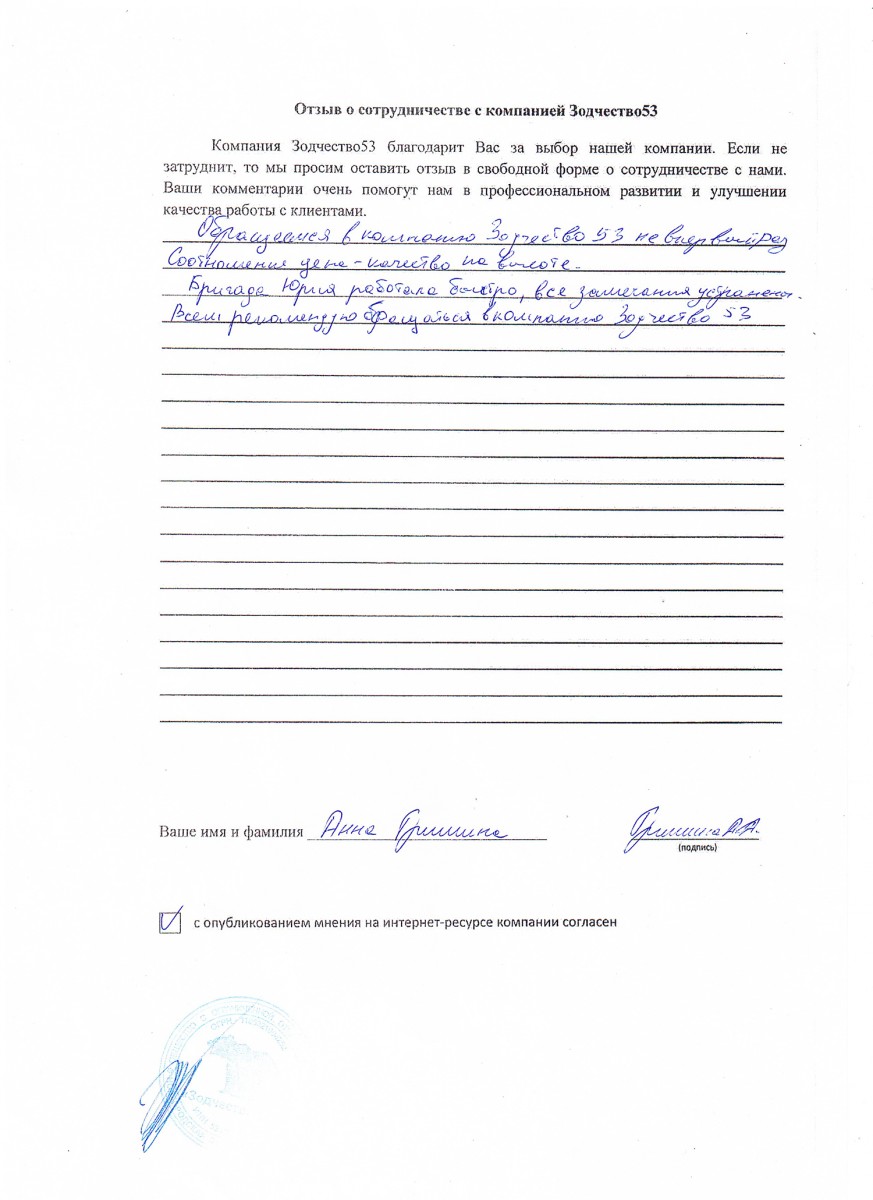 Отзыв о сотрудничестве с компанией Зодчество53
Компания Зодчество53 благодарит Вас за выбор нашей компании. Если не
затруднит, то мы просим оставить отзыв в свободной форме о сотрудничестве с нами.
Ваши комментарии очень помогут нам в профессиональном развитии и улучшении
качества работы с клиентами.
Обращаемся в компанию Зодчество 53 не в первый раз
Соотношение цена-качество на высоте.
Бригада Юрия работала быстро, все замечания устранены.
Всем рекомендую обращаться в компанию Зодчество 53
Ваше имя и фамилия Анна Гришина
Гришина А.А.
(подпись)
с опубликованием мнения на интернет-ресурсе компании согласен